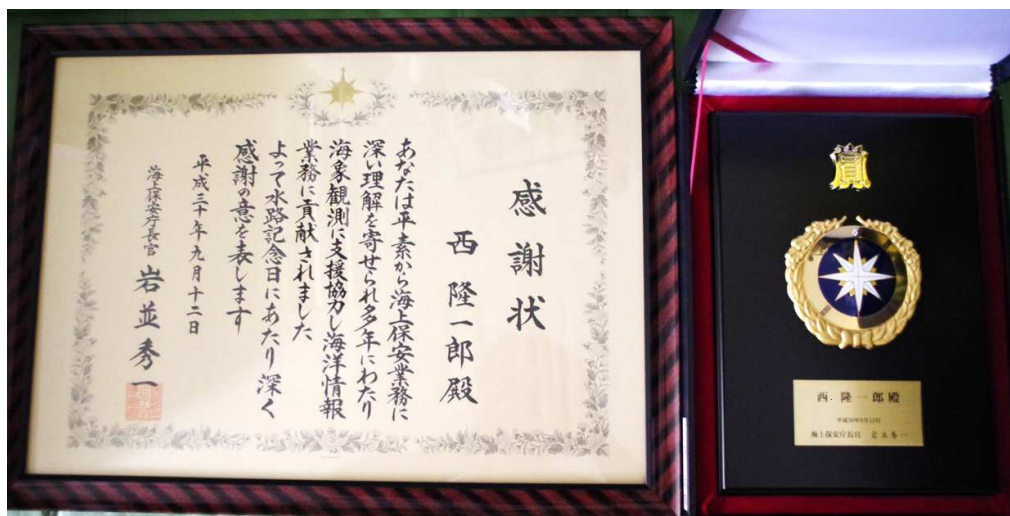 感謝状
西隆一郎殿
あなたは平素から海上保安業務に
深い理解を寄せられ多年にわたり
海象観測に支援協力し海洋情報
業務に貢献されました
よって水路記念日にあたり深く
感謝の意を表します
平成三十年九月十二日
海上保安庁長官 岩並秀一
賞
西 隆一郎殿
平成30年9月12日
海上保安庁長官 岩並秀一